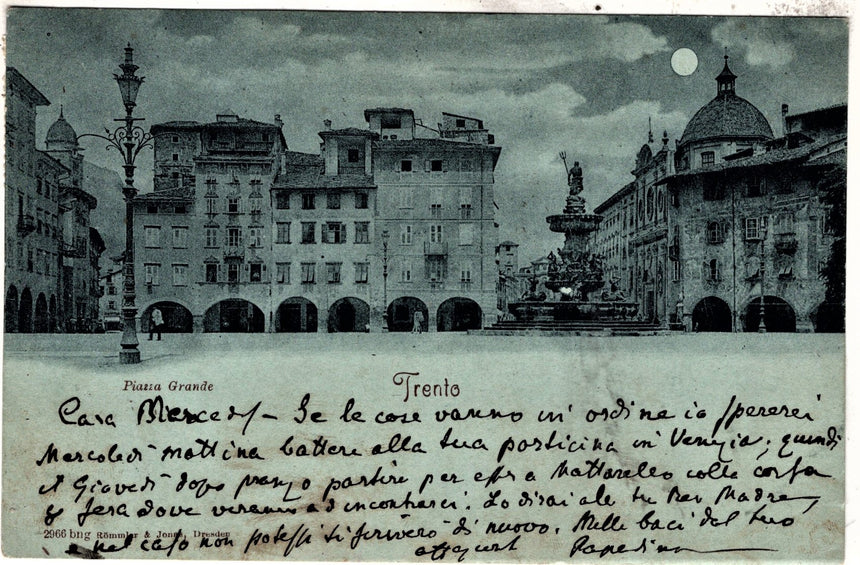 Piazza Grande
Trento
Cara Merced - Se le cose vanno in ordine io spererei
Mercoledì mattina battere alla tua porticina in Venezia; quindi
il Giovedì dopo pranzo partire per a Mattarello colla corsa
sera dove verranno ad incontrarci. Lo dirai alle tue Madre
e nel caso non potessi ti scriverò di nuovo. Mille baci dal tuo
2966 bng Römmler & Jonas, Dresden